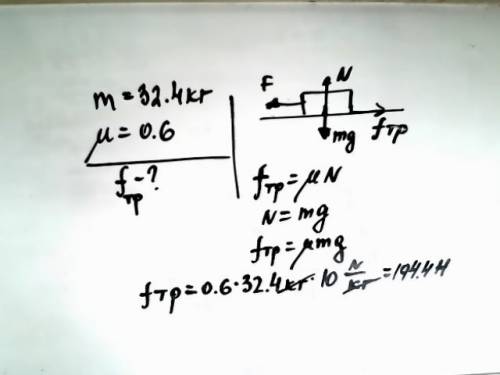 m = 32.4кг
μ = 0.6
fтр - ?
F
N
mg
fтр
fтр = μN
N = mg
fтр = μmg
fтр = 0.6 · 32.4кг · 10 N/кг = 194.4Н